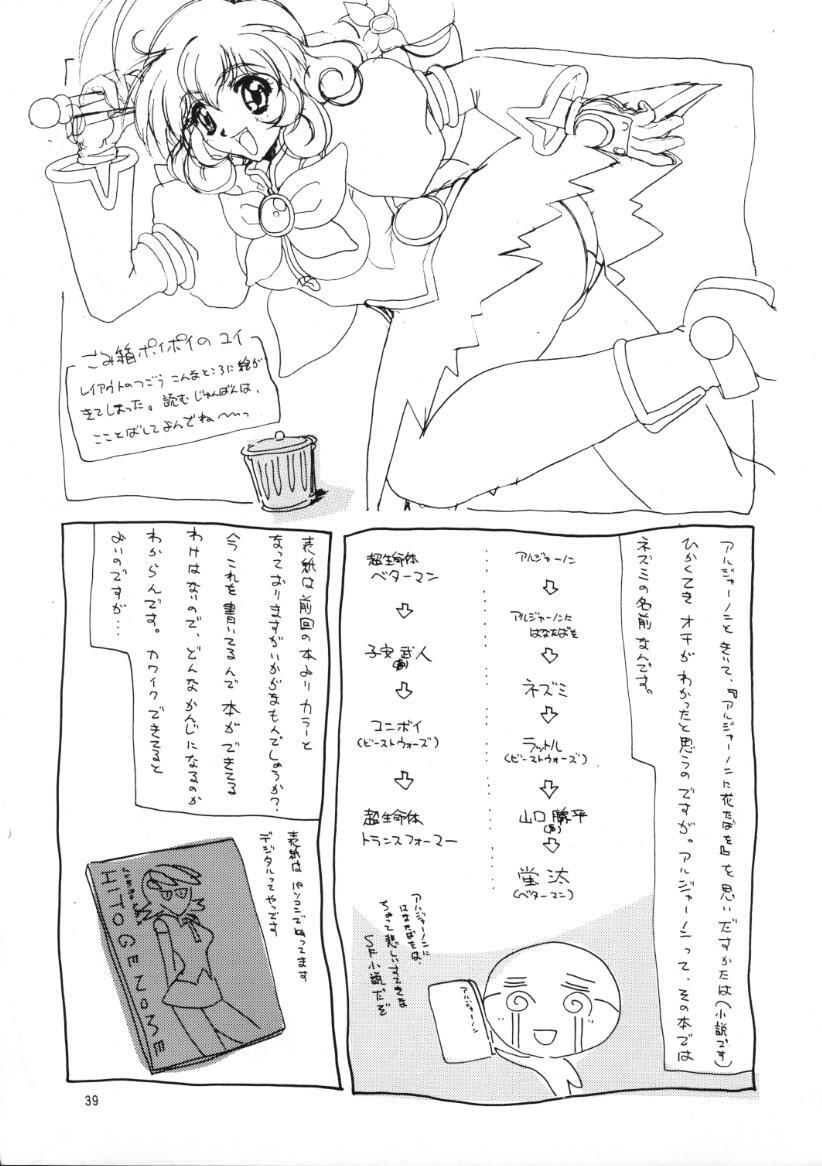 ごみ箱ポイポイのユイ
レイアウトのつごう こんなところに絵が
きてしまった。読むじゅんばんは、
ここをとばしてよんでね〜っ
アルジャーノンときいて、『アルジャーノンに花たばを』を思いだすかたは(小説です)
ひかくてき オチが わかったと思うのですが。アルジャーノンって、その本では
ネズミの名前なんです。
アルジャーノン
⇩
アルジャーノンに
はなたばを
⇩
ネズミ
⇩
ラットル
(ビーストウォーズ)
⇩
山口勝平
⇩
蛍汰
(ベターマン)
超生命体
ベターマン
⇩
子安武人
⇩
コンボイ
(ビーストウォーズ)
⇩
超生命体
トランスフォーマー
アルジャーノンに
はなたばをは、
ちょっと悲しいすてきな
SF小説だぞ
アルジャーノン
表紙は前回の本よりカラーと
なっておりますがいかがなもんでしょうか?
今これを書いてるんで本ができてる
わけはないので、どんなかんじになるのか
わからんです。カワイクできてると
よいのですが…
表紙はパソコンでぬってます
デジタルってやつです
HITOGENOME
39